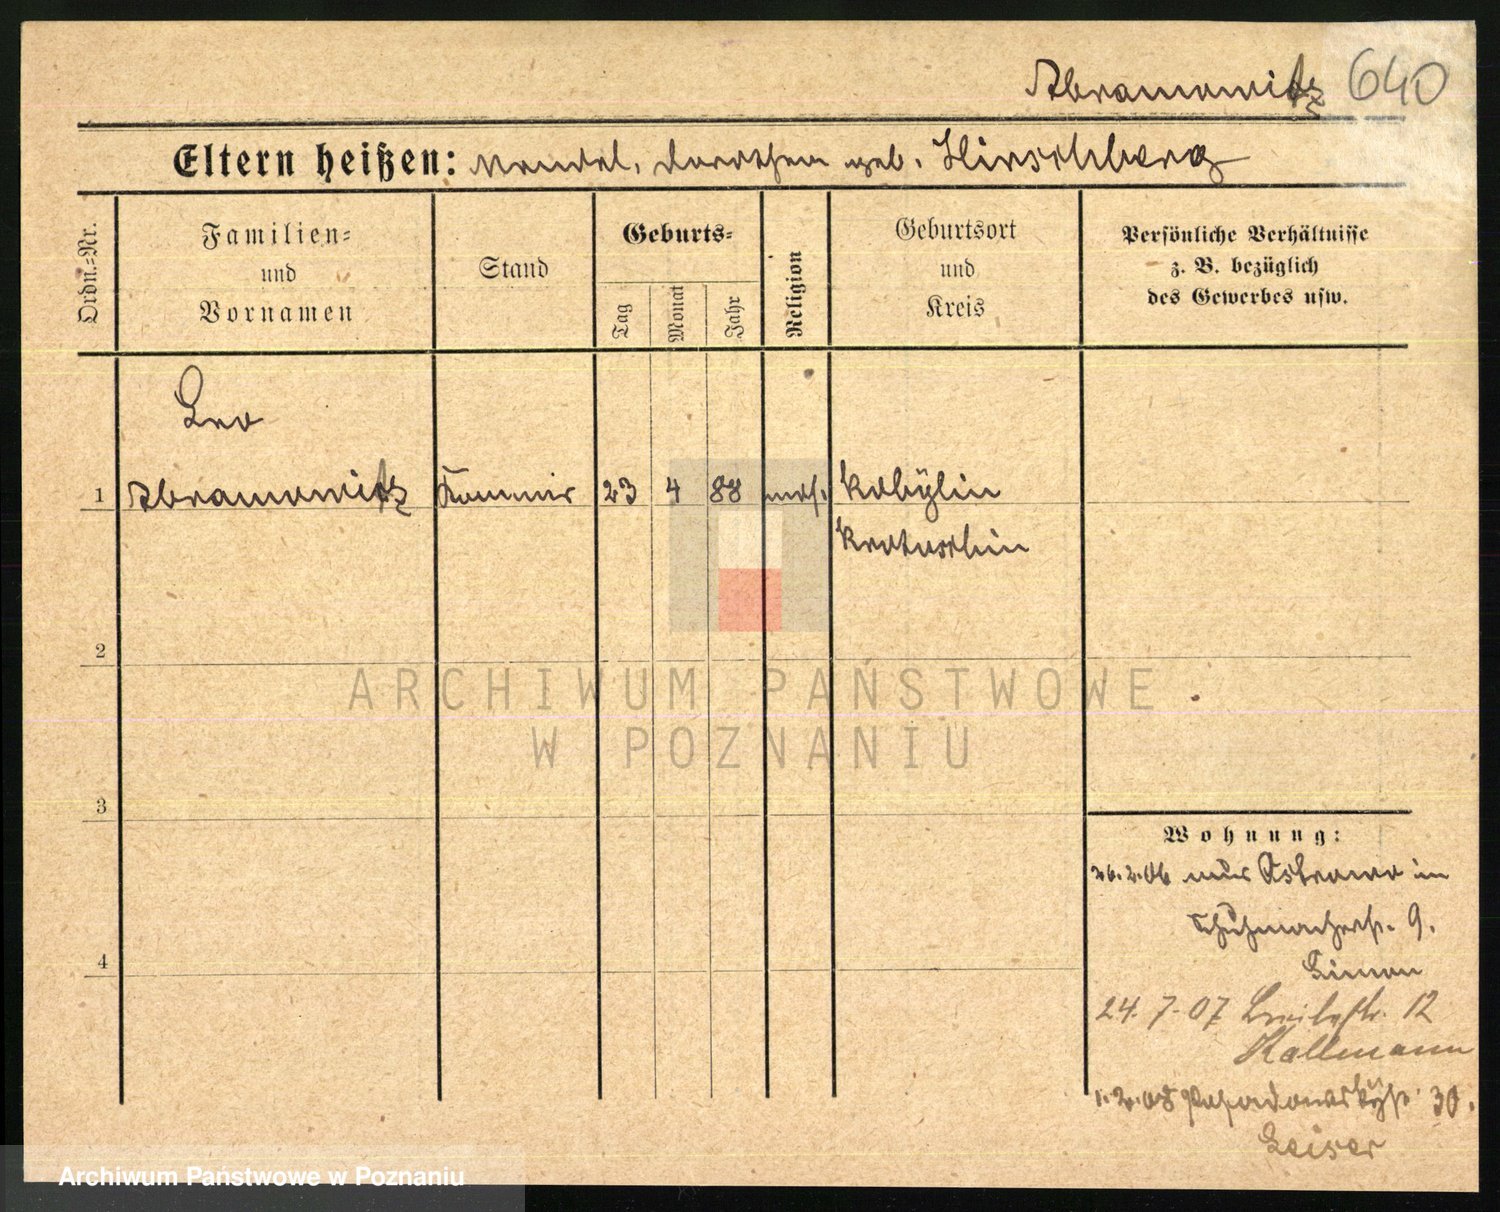 Abramowitz 640
Eltern heißen: Mendel, Dorothea geb. Hirschberg
Ordn.=Nr.
Familien=
und
Vornamen
Stand
Geburts=
Tag
Monat
Jahr
Religion
Geburtsort
und
Kreis
Persönliche Verhältnisse
z. B. bezüglich
des Gewerbes usw.
Leo
1 Abramowitz Kommis 23 4 88 mos. Kobylin
Krotoschin
2
ARCHIWUM PAŃSTWOWE
W POZNANIU
3
Wohnung:
26.2.06 aus Ostrowo in
Schuhmacherstr. 9.
Simon
4
24. 7. 07 Breitestr. 12
Kallmann
1.2.08 30.
Leiser
Archiwum Państwowe w Poznaniu